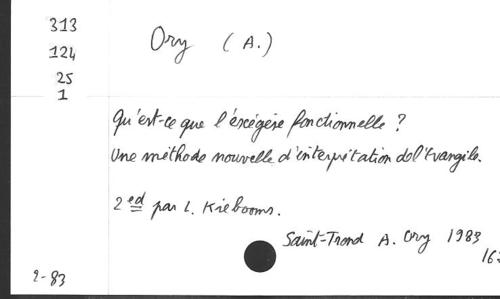 313
124
25
1
Ory (A.)
Qu'est-ce que l'éxégèse fonctionnelle ?
Une méthode nouvelle d'interprétation de l'Evangile.
2ed par L. Kiebooms.
Saint-Trond A. Ory 1983
2-83